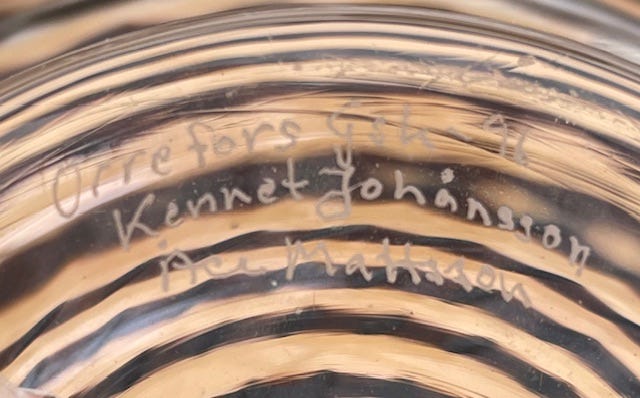 Orrefors Gsk-96
Kennet Johansson
Mattisson